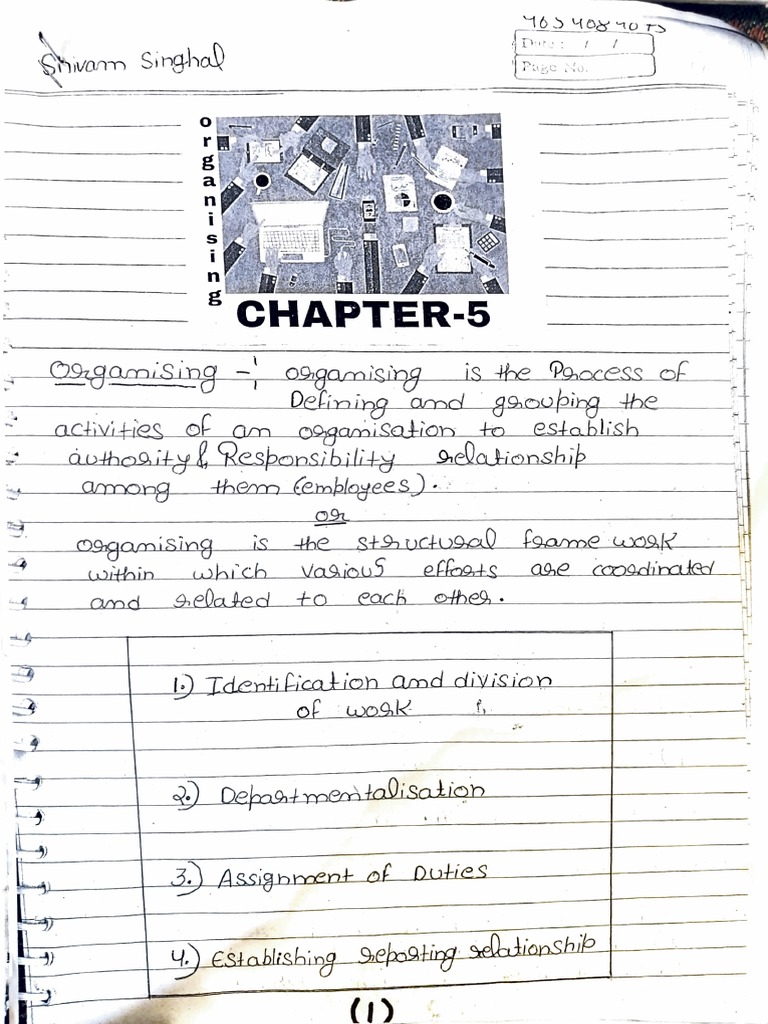 Shivam Singhal
Date: / /
Page No.
organising
CHAPTER-5
Organising -: organising is the Process of
Defining and grouping the
activities of an organisation to establish
authority & Responsibility relationship
among them (employees).
or
organising is the structural frame work
within which various efforts are coordinated
and related to each other.
1.) Identification and division
of work
2.) Departmentalisation
3.) Assignment of Duties
4.) Establishing reporting relationship
(1)